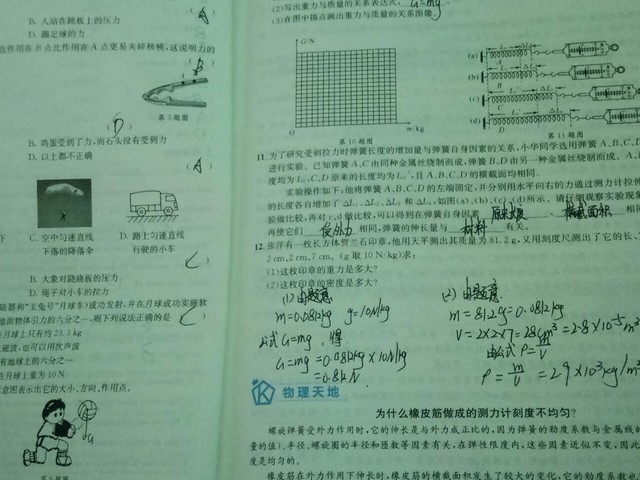 B. 人站在跳板上的压力
D. 踢足球的力
在B点比作用在A点更易夹碎核桃,这说明力的
A
B
第5题图
D
B. 鸡蛋受到了力,而石头没有受到力
D. 以上都不正确
A
C. 空中匀速直线
下落的降落伞
D. 路上匀速直线
行驶的小车
B. 大象对跷跷板的压力
D. 绳子对小车的拉力
C
和“玉兔”号月球车)成功发射,并在月球成功实施软
地面物体引力的六分之一,则下列说法正确的是
C
月球上只有约23.3 kg
也可以用次声波
有地球上的六分之一
在月球上重为10 N
意图表示出它的大小、方向、作用点。
G
(2)写出重力与质量的关系表达式:G=mg
(3)在图中描点画出重力与质量的关系图像。
G/N
O
m/kg
第10题图
(a)
(b)
(c)
(d)
第11题图
11. 为了研究受到拉力时弹簧长度的增加量与弹簧自身因素的关系,小华同学选用弹簧A、B、C、D
进行实验。已知弹簧A、C由同种金属丝绕制而成,弹簧B、D由另一种金属丝绕制而成。A、
度均为L₀,C、D原来的长度均为L₀′,且A、B、C、D的横截面均相同。
实验操作如下:他将弹簧A、B、C、D的左端固定,并分别用水平向右的力通过测力计拉伸
的长度各自增加了
如图(a)、(b)、(c)、(d)所示。请仔细观察实验现象
验做比较,再对c、d做比较,可以得到在弹簧自身因素 原长度 、 横截面积 相同
再使它们 受外力 相同,弹簧的伸长量与 材料 有关。
12. 张洋有一枚长方体贺兰石印章,他用天平测出其质量为81.2 g,又用刻度尺测出了它的长、
2 cm,2 cm,7 cm。(g取10 N/kg)求:
(1)这枚印章的重力是多大?
(2)这枚印章的密度是多大?
(1)由题意
m=0.0812kg g=10N/kg
公式G=mg,得
G=mg=0.0812kg×10N/kg
=0.812N
(2) 由题意
m=81.2g=0.0812kg
V=2×2×7=28cm³=2.8×10⁻⁵m³
由公式 ρ=m/V
ρ=m/V=2.9×10³kg/m³
K 物理天地
为什么橡皮筋做成的测力计刻度不均匀?
螺旋弹簧受外力作用时,它的伸长是与外力成正比的,因为弹簧的劲度系数与金属线的
量的值)、半径、螺旋圈的半径和匝数等因素有关,在弹性限度内,这些因素近似不变,因此
度是均匀的。
橡皮筋在外力作用下伸长时,橡皮筋的横截面积发生了较大的变化,它的劲度系数也